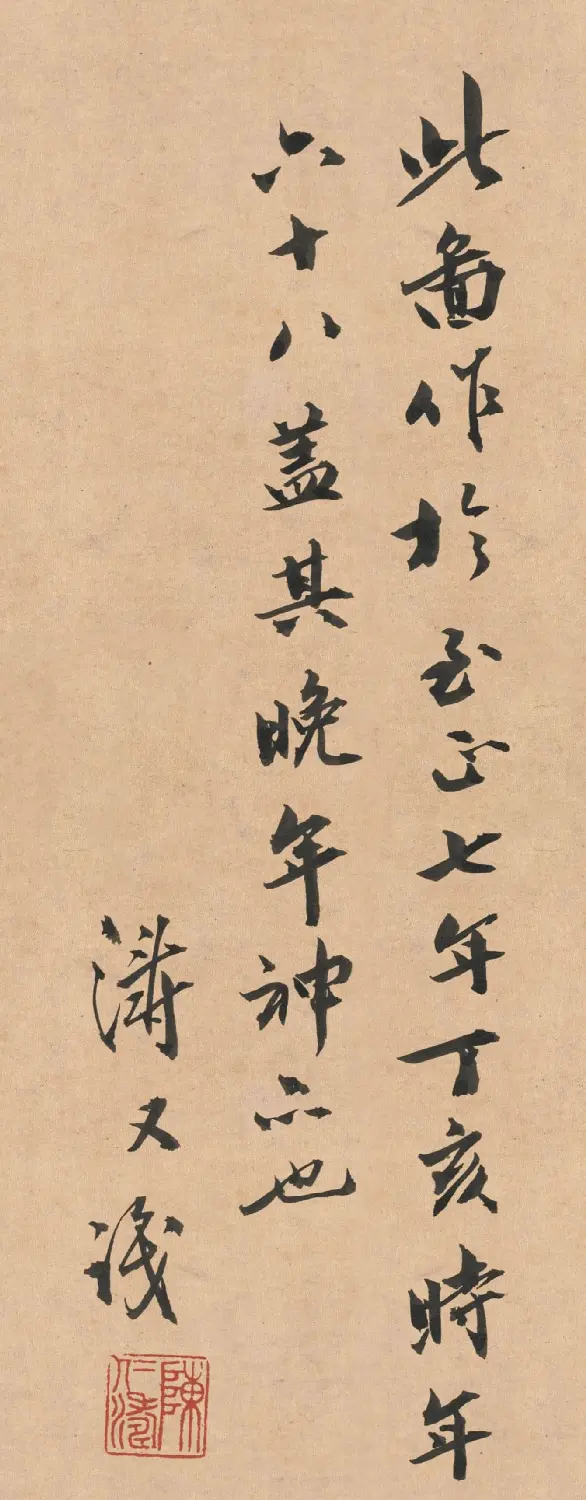 此圖作於至正七年丁亥時年
六十八蓋其晚年神品也
潚又識
陳仁濤